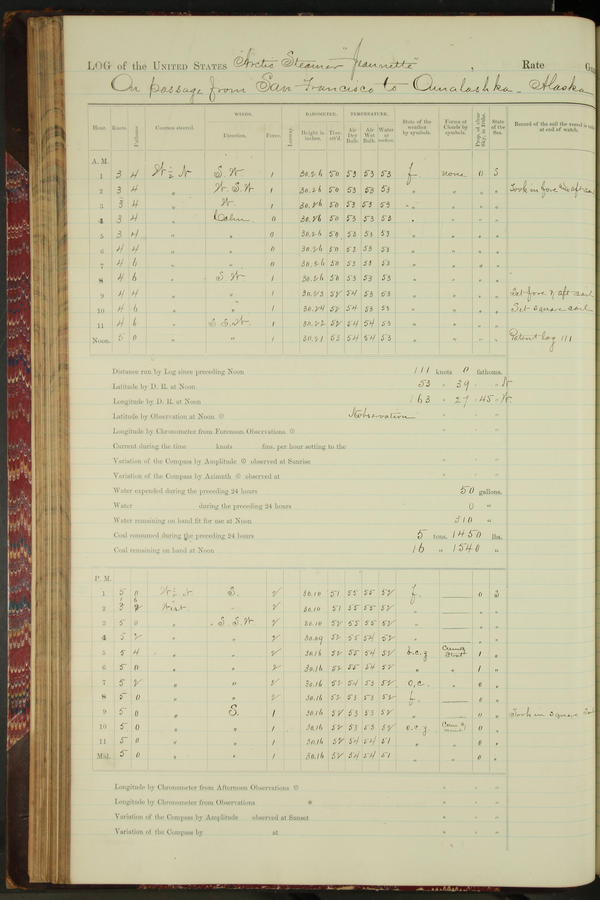 LOG of the UNITED STATES "Arctic Steamer" "Jeannette", Rate
On passage from San Francisco to Ounalashka - Alaska
WINDS. BAROMETER. TEMPERATURE.
Hour. Knots. Fathoms. Courses steered. Direction. Force. Leeway. Height in inches. Ther. att'd. Air Dry Bulb. Air Wet Bulb. Water at surface. State of the weather by symbols. Forms of Clouds by symbols. Prop. of clear Sky, in 10ths. State of the Sea. Record of the sail the vessel is under at end of watch.
A. M.
1 3 4 W ½ N S. W 1 30.26 50 53 53 53 f. none 0 S
2 3 4 " W. S. W 1 30.26 50 53 53 53 " " " " Took in fore
3 3 4 " W. 1 30.26 50 53 53 53 " " " "
4 3 4 " Calm 0 30.26 50 53 53 53 " " " "
5 3 4 " " 0 30.26 50 53 53 53 " " " "
6 4 4 " " 0 30.26 50 53 53 53 " " " "
7 4 6 " " 0 30.26 50 53 53 53 " " " "
8 4 6 " S. W 1 30.26 50 53 53 53 " " " "
9 4 4 " " 1 30.23 52 54 53 53 " " " " Set fore & aft sail
10 4 6 " " 1 30.24 52 54 53 53 " " " " Set square sail
11 4 6 " S. S. W 1 30.22 52 54 54 53 " " " "
Noon. 5 0 " " 1 30.21 53 54 54 53 " " " " Patent log 111
Distance run by Log since preceding Noon 111 knots 0 fathoms.
Latitude by D. R. at Noon 53 " 39 " " N
Longitude by D. R. at Noon 163 " 27 " 45 " W.
Latitude by Observation at Noon ☉ No observation " "
Longitude by Chronometer from Forenoon Observations ☉ " " "
Current during the time knots fms. per hour setting to the
Variation of the Compass by Amplitude ☉ observed at Sunrise " " "
Variation of the Compass by Azimuth ☉ observed at " " "
Water expended during the preceding 24 hours 50 gallons.
Water during the preceding 24 hours 0 "
Water remaining on hand fit for use at Noon 310 "
Coal consumed during the preceding 24 hours 5 tons. 1450 lbs.
Coal remaining on hand at Noon 16 " 1540 "
P. M.
1 5 0 W ½ N S. 2 30.10 51 55 55 52 f. 0 S
2 West " 2 30.10 51 55 55 52 " " "
3 5 0 " S. S. W 2 30.10 52 55 55 52 " " "
4 5 2 " " 2 30.09 52 55 54 52 " " "
5 5 4 " " 2 30.16 52 55 54 52 b.c.z 1 "
6 5 0 " " 2 30.16 52 55 54 52 " " 1 "
7 5 2 " " 2 30.16 52 54 53 52 o.c. " 0 "
8 5 0 " " 2 30.16 52 53 53 52 f. 0 "
9 5 0 " S. 1 30.16 52 53 53 52 " 0 " Took in square sail
10 5 0 " " 1 30.16 52 53 53 52 o.c.z 0 "
11 5 0 " " 1 30.16 52 54 54 51 " " 0 "
Mid. 5 0 " " 1 30.16 52 54 54 51 " " 0 "
Longitude by Chronometer from Afternoon Observations ☉ " " "
Longitude by Chronometer from Observations * " " "
Variation of the Compass by Amplitude observed at Sunset " " "
Variation of the Compass by at " " "